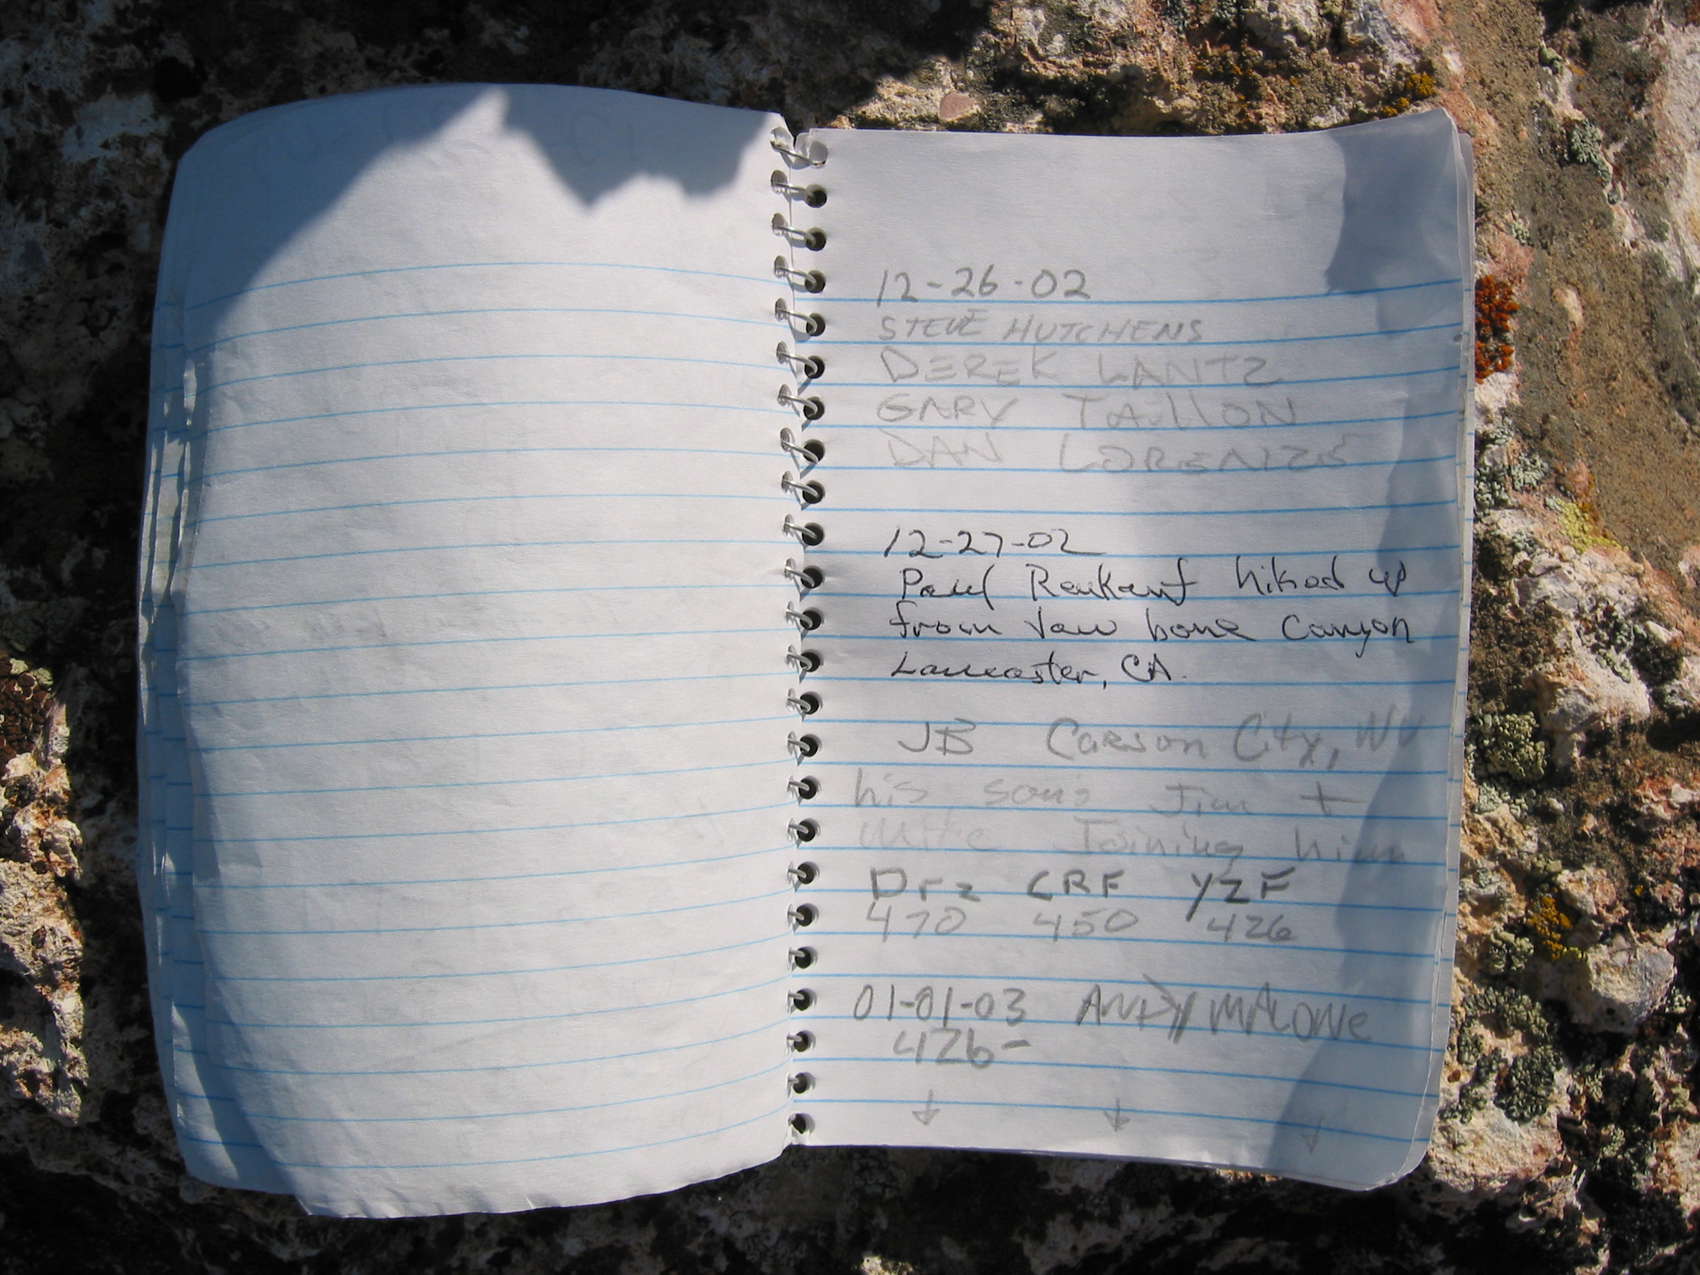 12-26-02
STEVE HUTCHENS
DEREK LANTZ
GARY TALLON
DAN
12-27-02
Paul hiked up
from Jaw bone Canyon
Lancaster, CA.
JB Carson City, NV
his sons Jim +
Mike Joining him
Drz CRF YZF
470 450 426
01-01-03 ANDY MALONe
426-
↓ ↓ ↓